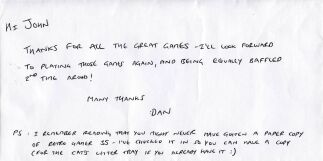 Hi JOHN
THANKS FOR ALL THE GREAT GAMES - I'LL LOOK FORWARD
TO PLAYING THOSE GAMES AGAIN, AND BEING EQUALLY BAFFLED
2ND TIME AROUND!
MANY THANKS
DAN
PS : I REMEMBER READING THAT YOU MIGHT NEVER HAVE GOTTEN A PAPER COPY
OF RETRO GAMER 55 - I'VE CHUCKED IT IN SO YOU CAN HAVE A COPY
(FOR THE CATS LITTER TRAY IF YOU ALREADY HAVE IT :)